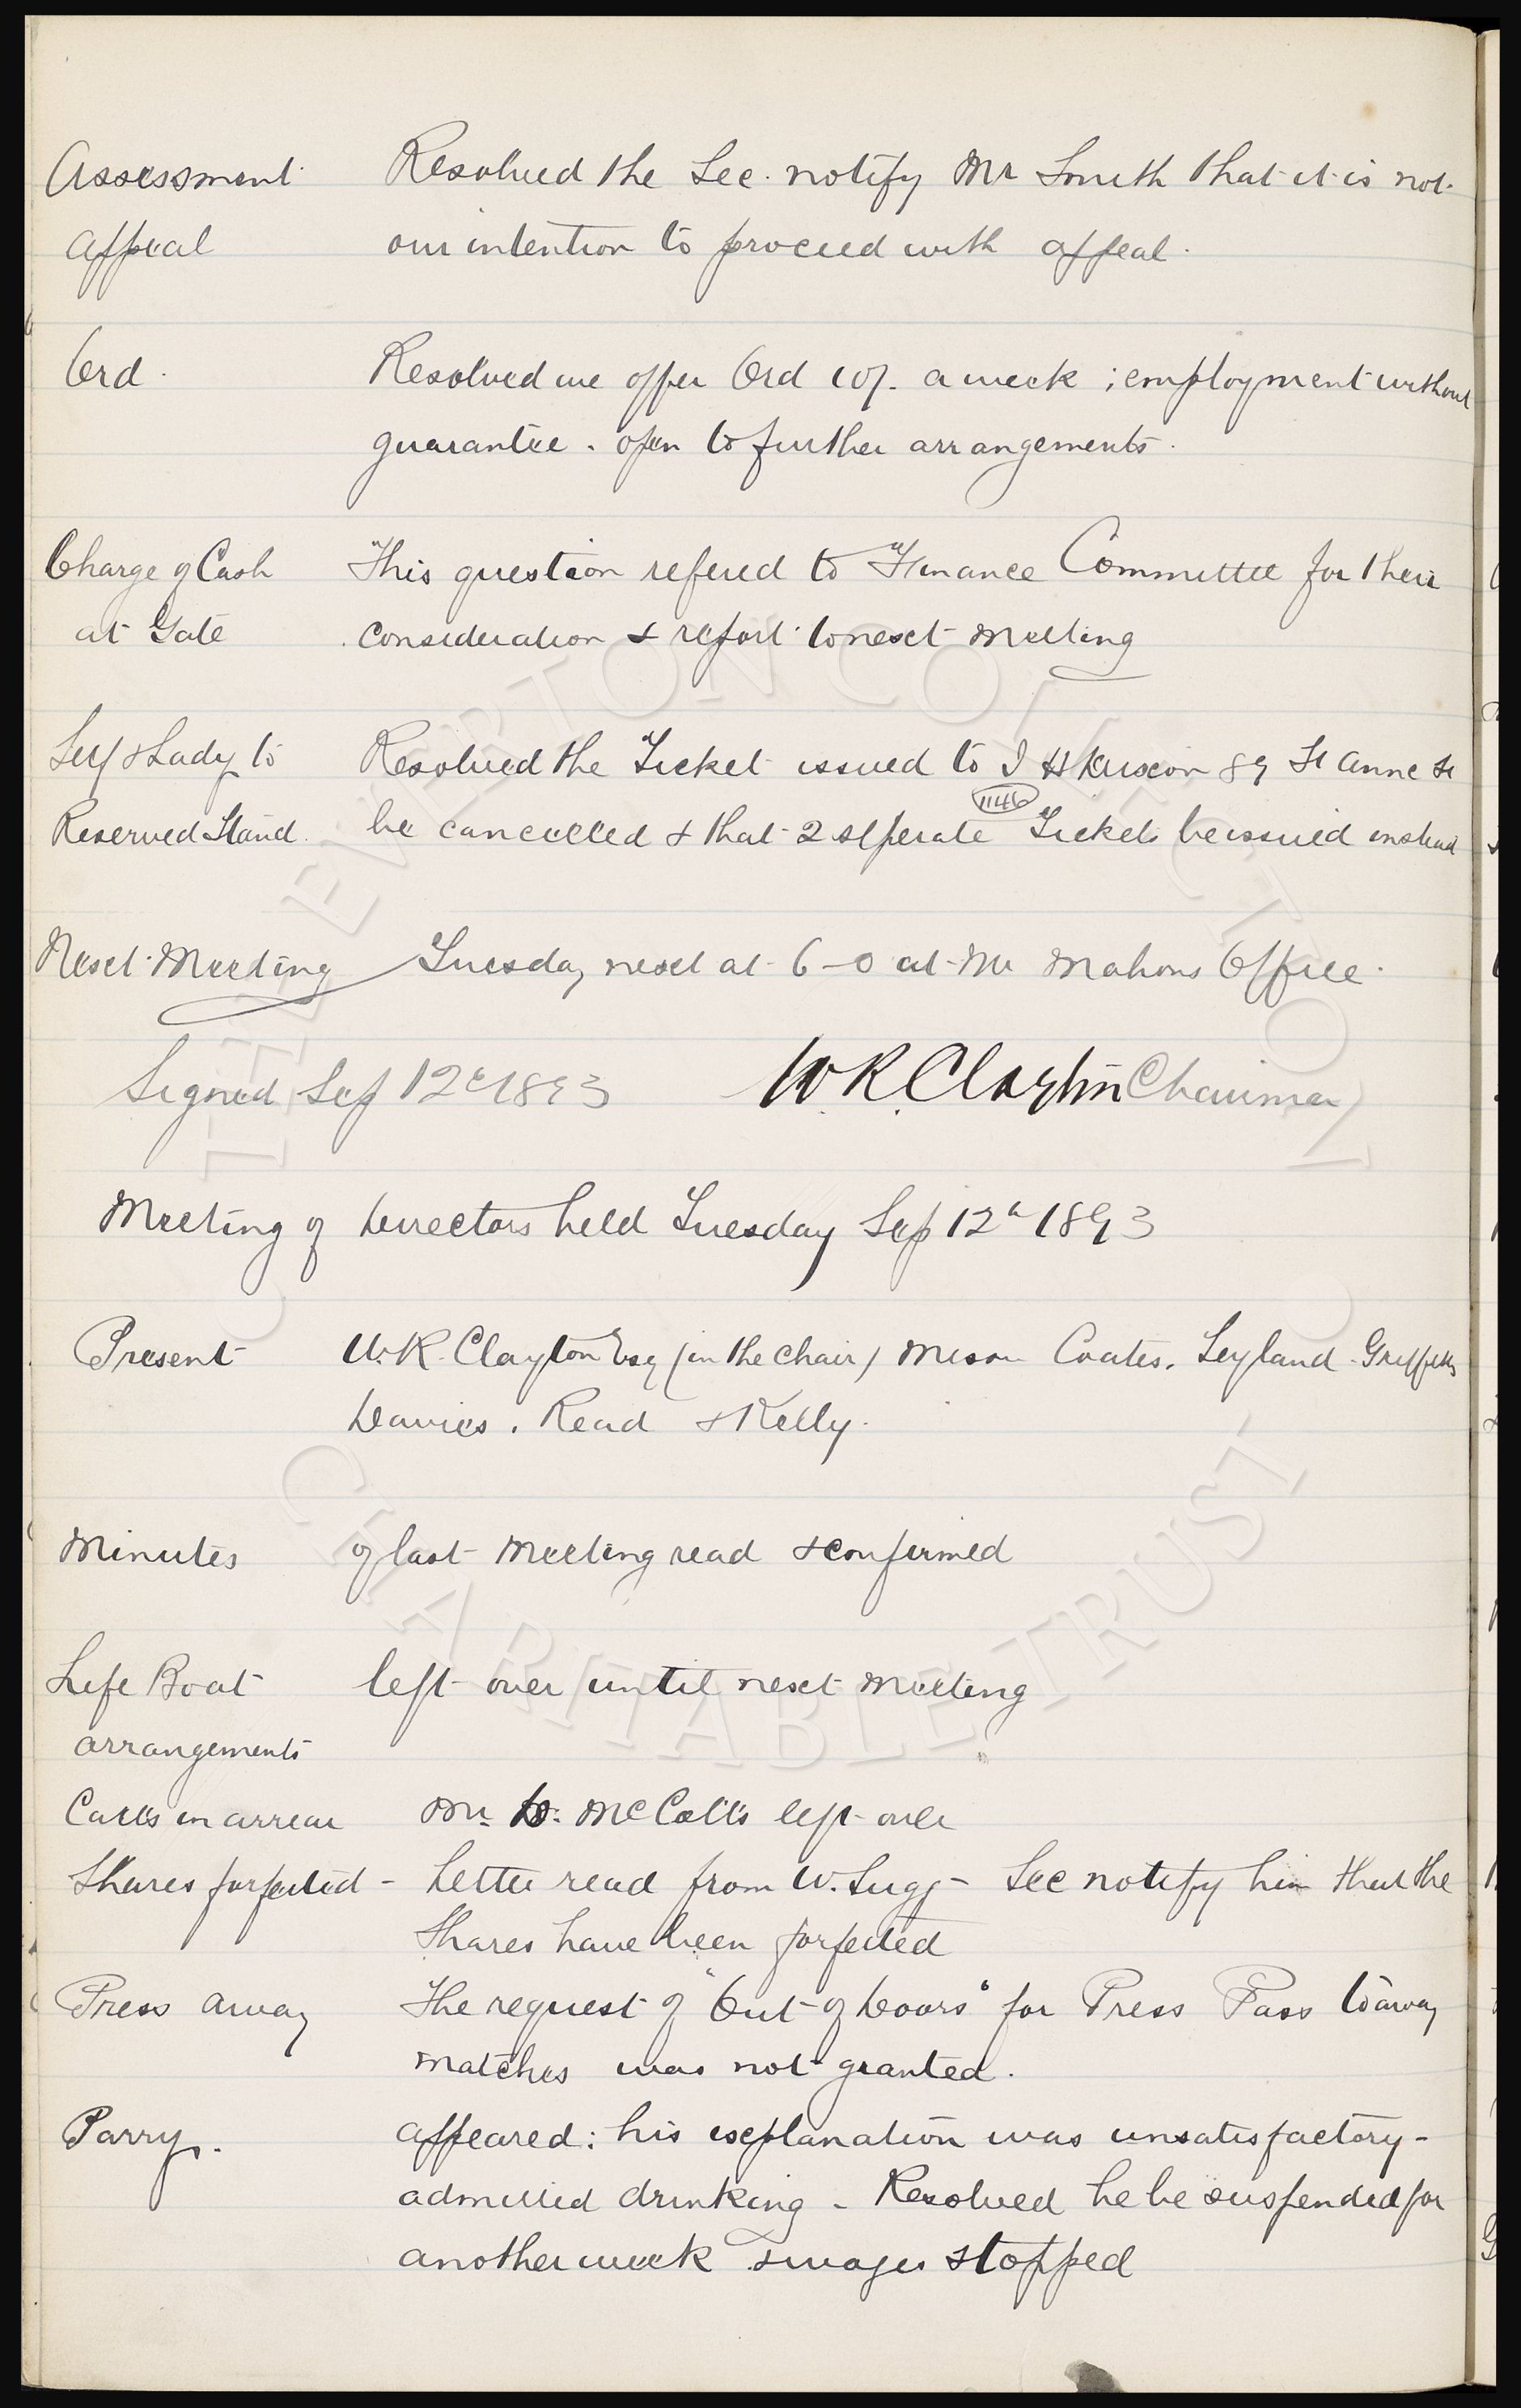 Assessment Resolved the Sec. notify Mr Smith that it is not
Appeal our intention to proceed with appeal.
Ord. Resolved we offer Ord 10/- a week ; employment without
guarantee. open to further arrangements.
Charge of Cash This question refered to Finance Committee for their
at Gate consideration & report to next meeting
Self & Lady to Resolved the Ticket issued to J H 89 St Anne St
1146
Reserved Stand. be cancelled & that 2 seperate Tickets be issued instead
Next Meeting Tuesday next at 6-0 at Mr Mahons Office.
Signed Sep 12th 1893 W. R. Clayton Chairman
Meeting of Directors held Tuesday Sep 12th 1893
Present W. R. Clayton Esq (in the chair) Messrs Coates. Leyland. Griffiths
Davies. Read & Kelly.
Minutes of last meeting read & confirmed
Life Boat left over until next meeting
arrangements
Calls in arrear Mr. D. McColl's left over
Shares forfeited - Letter read from W. Sugg - Sec notify him that the
Shares have been forfeited
Press away The request of "Out of Doors" for Press Pass to away
matches was not granted.
Parry. appeared: his explanation was unsatisfactory-
admitted drinking - Resolved he be suspended for
another week & wages stopped
THE EVERTON COLLECTION
CHARITABLE TRUST